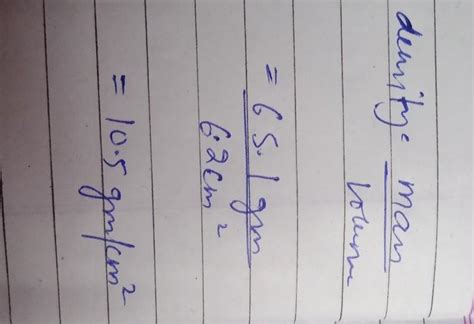 density = mass
volume
= 65.1 gm
6.2 cm²
= 10.5 gm/cm²